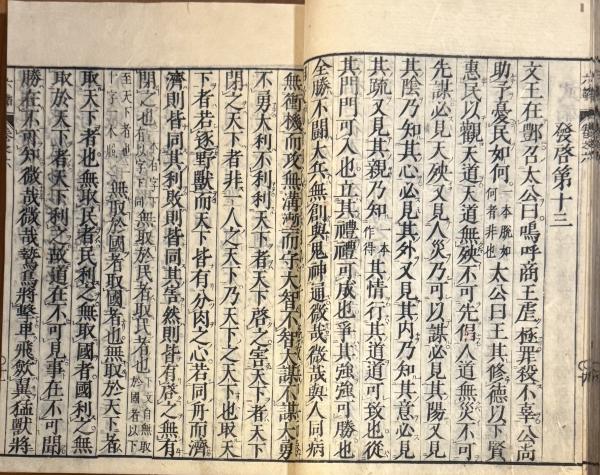 發啓第十三
文王在酆召太公曰嗚呼商王虐極罪殺不辜公尚
助予憂民如何一本脱如何者非也太公曰王其修德以下賢
惠民以觀天道天道無殃不可先倡人道無災不可
先謀必見天殃又見人災乃可以謀必見其陽又見
其陰乃知其心必見其外又見其内乃知其意必見
其疏又見其親乃知一本作得其情行其道道可致也從
其門門可入也立其禮禮可成也爭其強強可勝也
全勝不鬪大兵無創與鬼神通微哉微哉與人同病
無衝機而攻無溝塹而守大智不智大謀不謀大勇
不勇大利不利利天下者天下啓之害天下者天下
閉之天下者非一人之天下乃天下之天下也取天
下者若逐野獸而天下皆有分肉之心若同舟而濟
濟則皆同其利敗則皆同其害然則皆有啓之無有
閉之也無取於民者取民者也下文自無取於國者以下
至天下者也無取於國者取國者也無取於天下者
取天下者也無取民者民利之無取國者國利之無
取於天下者天下利之故道在不可見事在不可聞
勝在不可知微哉微哉鷙鳥將擊卑飛歛翼猛獸將